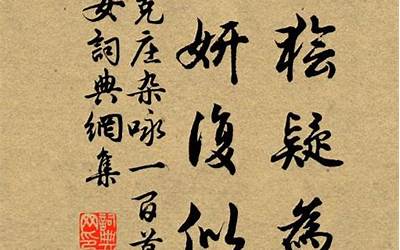 獪疑為
妍復似
克庄杂咏一百首
女詞典網集